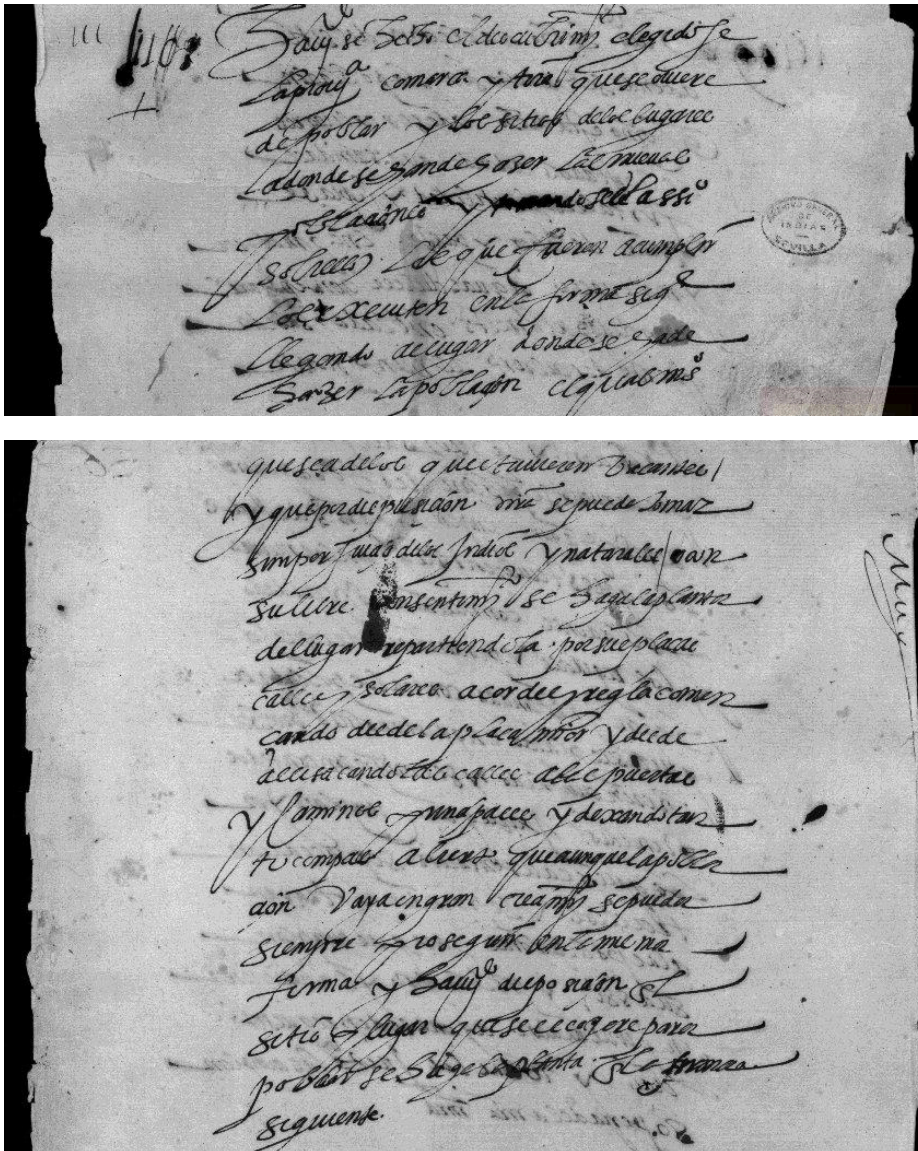 111 | 110 |
Haviᵒ se hecho el descubrimiᵒ elegidose
la provᵃ comarca y trrᵃ que se oviere
de poblar y los sitios de los lugares
adonde se han de hazer las nuevas
poblaciones y tomandose el assiᵒ
sobrello. Los que fueren a cumplir
los executen en la forma sigᵉ
llegando al lugar donde se ha de
hazer la poblaçion el qual mᵒ
ARCHIVO GENERAL
DE
INDIAS
SEVILLA
que sea de los que estuvieren vacantes
y que por disposiçion nrᵃ se puede tomar
sin perjuizio de los Indios y naturales o con
su libre consentimiᵒ se haga la planta
del lugar repartiendola por sus plaças
calles y solares a cordel y regla comen
çando desde la plaça mayor y desde
alli sacando las calles a las puertas
y caminos prinçipales y dexando tan
to compas abierto que aunque la pobla
cion vaya en gran creçimiᵒ se pueda
siempre proseguir en la misma
forma y haviᵒ disposiçion en el
sitio y lugar que se escogiere para
poblar se haga la planta de la manera
siguiente.